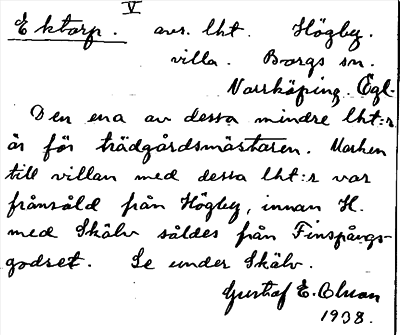 V
Ektorp. avs. lht. Högby.
villa. Borgs sn.
Norrköping. Ögl.
Den ena av dessa mindre lht:r
är för trädgårdsmästaren. Marken
till villan med dessa lht:r var
frånsåld från Högby, innan H.
med Skälv såldes från Finspångs-
godset. Se under Skälv.
Gustaf E. Olsson
1938.